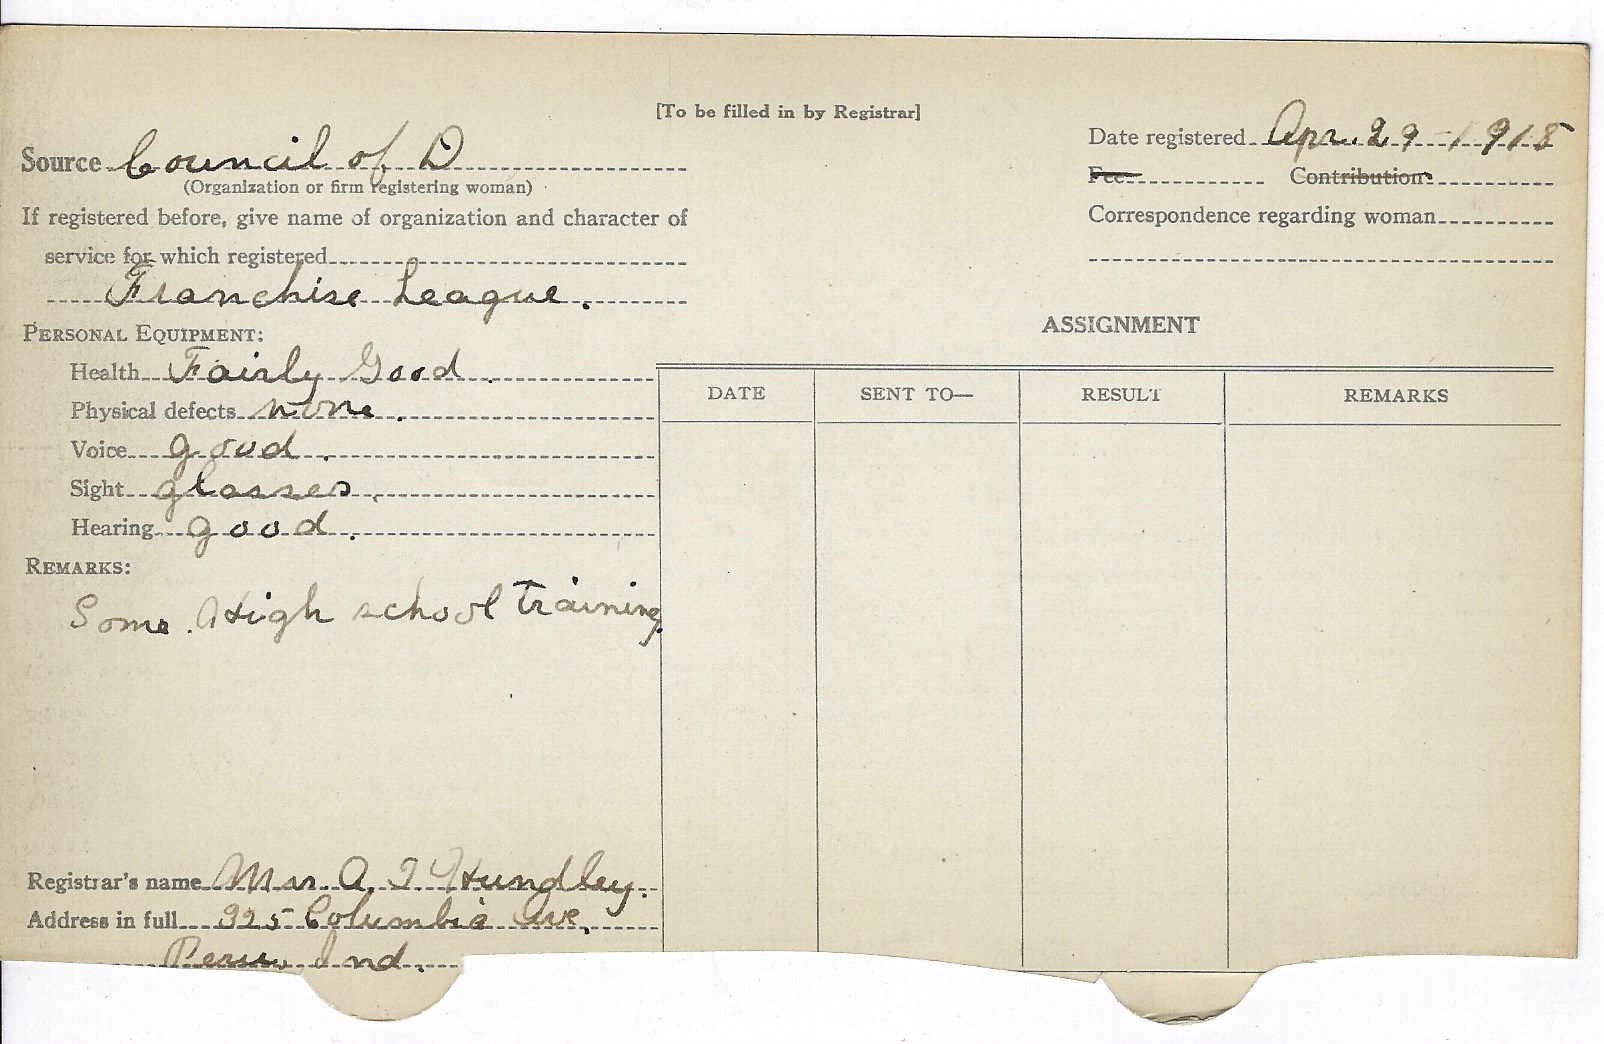 [To be filled in by Registrar]
Source Council of D
(Organization or firm registering woman)
If registered before, give name of organization and character of
service for which registered
Franchise League.
PERSONAL EQUIPMENT:
Health Fairly Good.
Physical defects none.
Voice good.
Sight glasses.
Hearing good.
REMARKS:
Some High school Training.
Registrar's name Mrs. A. I Hundley.
Address in full 325 Columbia Ave.
Peru, Ind.
Date registered Apr. 29-1918
Fee Contribution
Correspondence regarding woman
ASSIGNMENT
DATE SENT TO— RESULT REMARKS